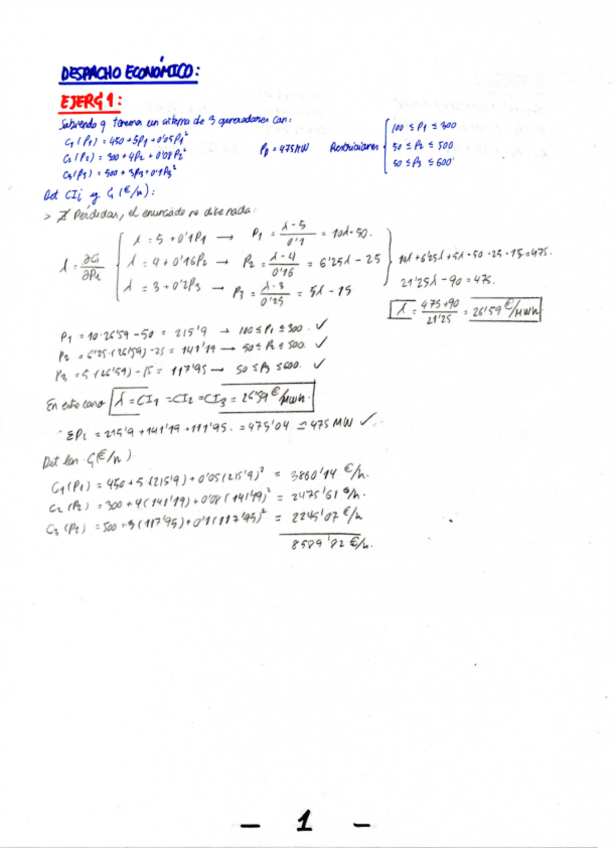 DESPACHO ECONÓMICO:
EJERC 1:
Sabiendo q tenemos un sistema de 3 generadores con:
C1(P1) = 450 + 5P1 + 0'05P1²
C2(P2) = 300 + 4P2 + 0'08P2²
C3(P3) = 500 + 3P3 + 0'1P3²
PD = 475MW
Restricciones
100 ≤ P1 ≤ 300
50 ≤ P2 ≤ 500
50 ≤ P3 ≤ 600
Det CIi y Ci (€/h):
> ∄ Pérdidas, el enunciado no dice nada:
λ = ∂Ci/∂Pi
λ = 5 + 0'1P1 → P1 = (λ-5)/0'1 = 10λ - 50.
λ = 4 + 0'16P2 → P2 = (λ-4)/0'16 = 6'25λ - 25
λ = 3 + 0'2P3 → P3 = (λ-3)/0'25 = 5λ - 15
10λ + 6'25λ + 5λ - 50 - 25 - 15 = 475.
21'25λ - 90 = 475.
λ = (475+90)/21'25 = 26'59 €/MWh
P1 = 10·26'59 - 50 = 215'9 → 100 ≤ P1 ≤ 300. ✓
P2 = 6'25·(26'59) - 25 = 141'19 → 50 ≤ P2 ≤ 500. ✓
P3 = 5(26'59) - 15 = 117'95 → 50 ≤ P3 ≤ 600. ✓
En este caso λ = CI1 = CI2 = CI3 = 26'59 €/MWh.
ΣPi = 215'9 + 141'19 + 117'95. = 475'04 ≃ 475 MW ✓.
Det las Ci (€/h)
C1(P1) = 450 + 5(215'9) + 0'05(215'9)² = 3860'14 €/h.
C2(P2) = 300 + 4(141'19) + 0'08(141'19)² = 2475'61 €/h.
C3(P2) = 500 + 3(117'95) + 0'1(117'95)² = 2245'07 €/h
8589'82 €/h.
- 1 -